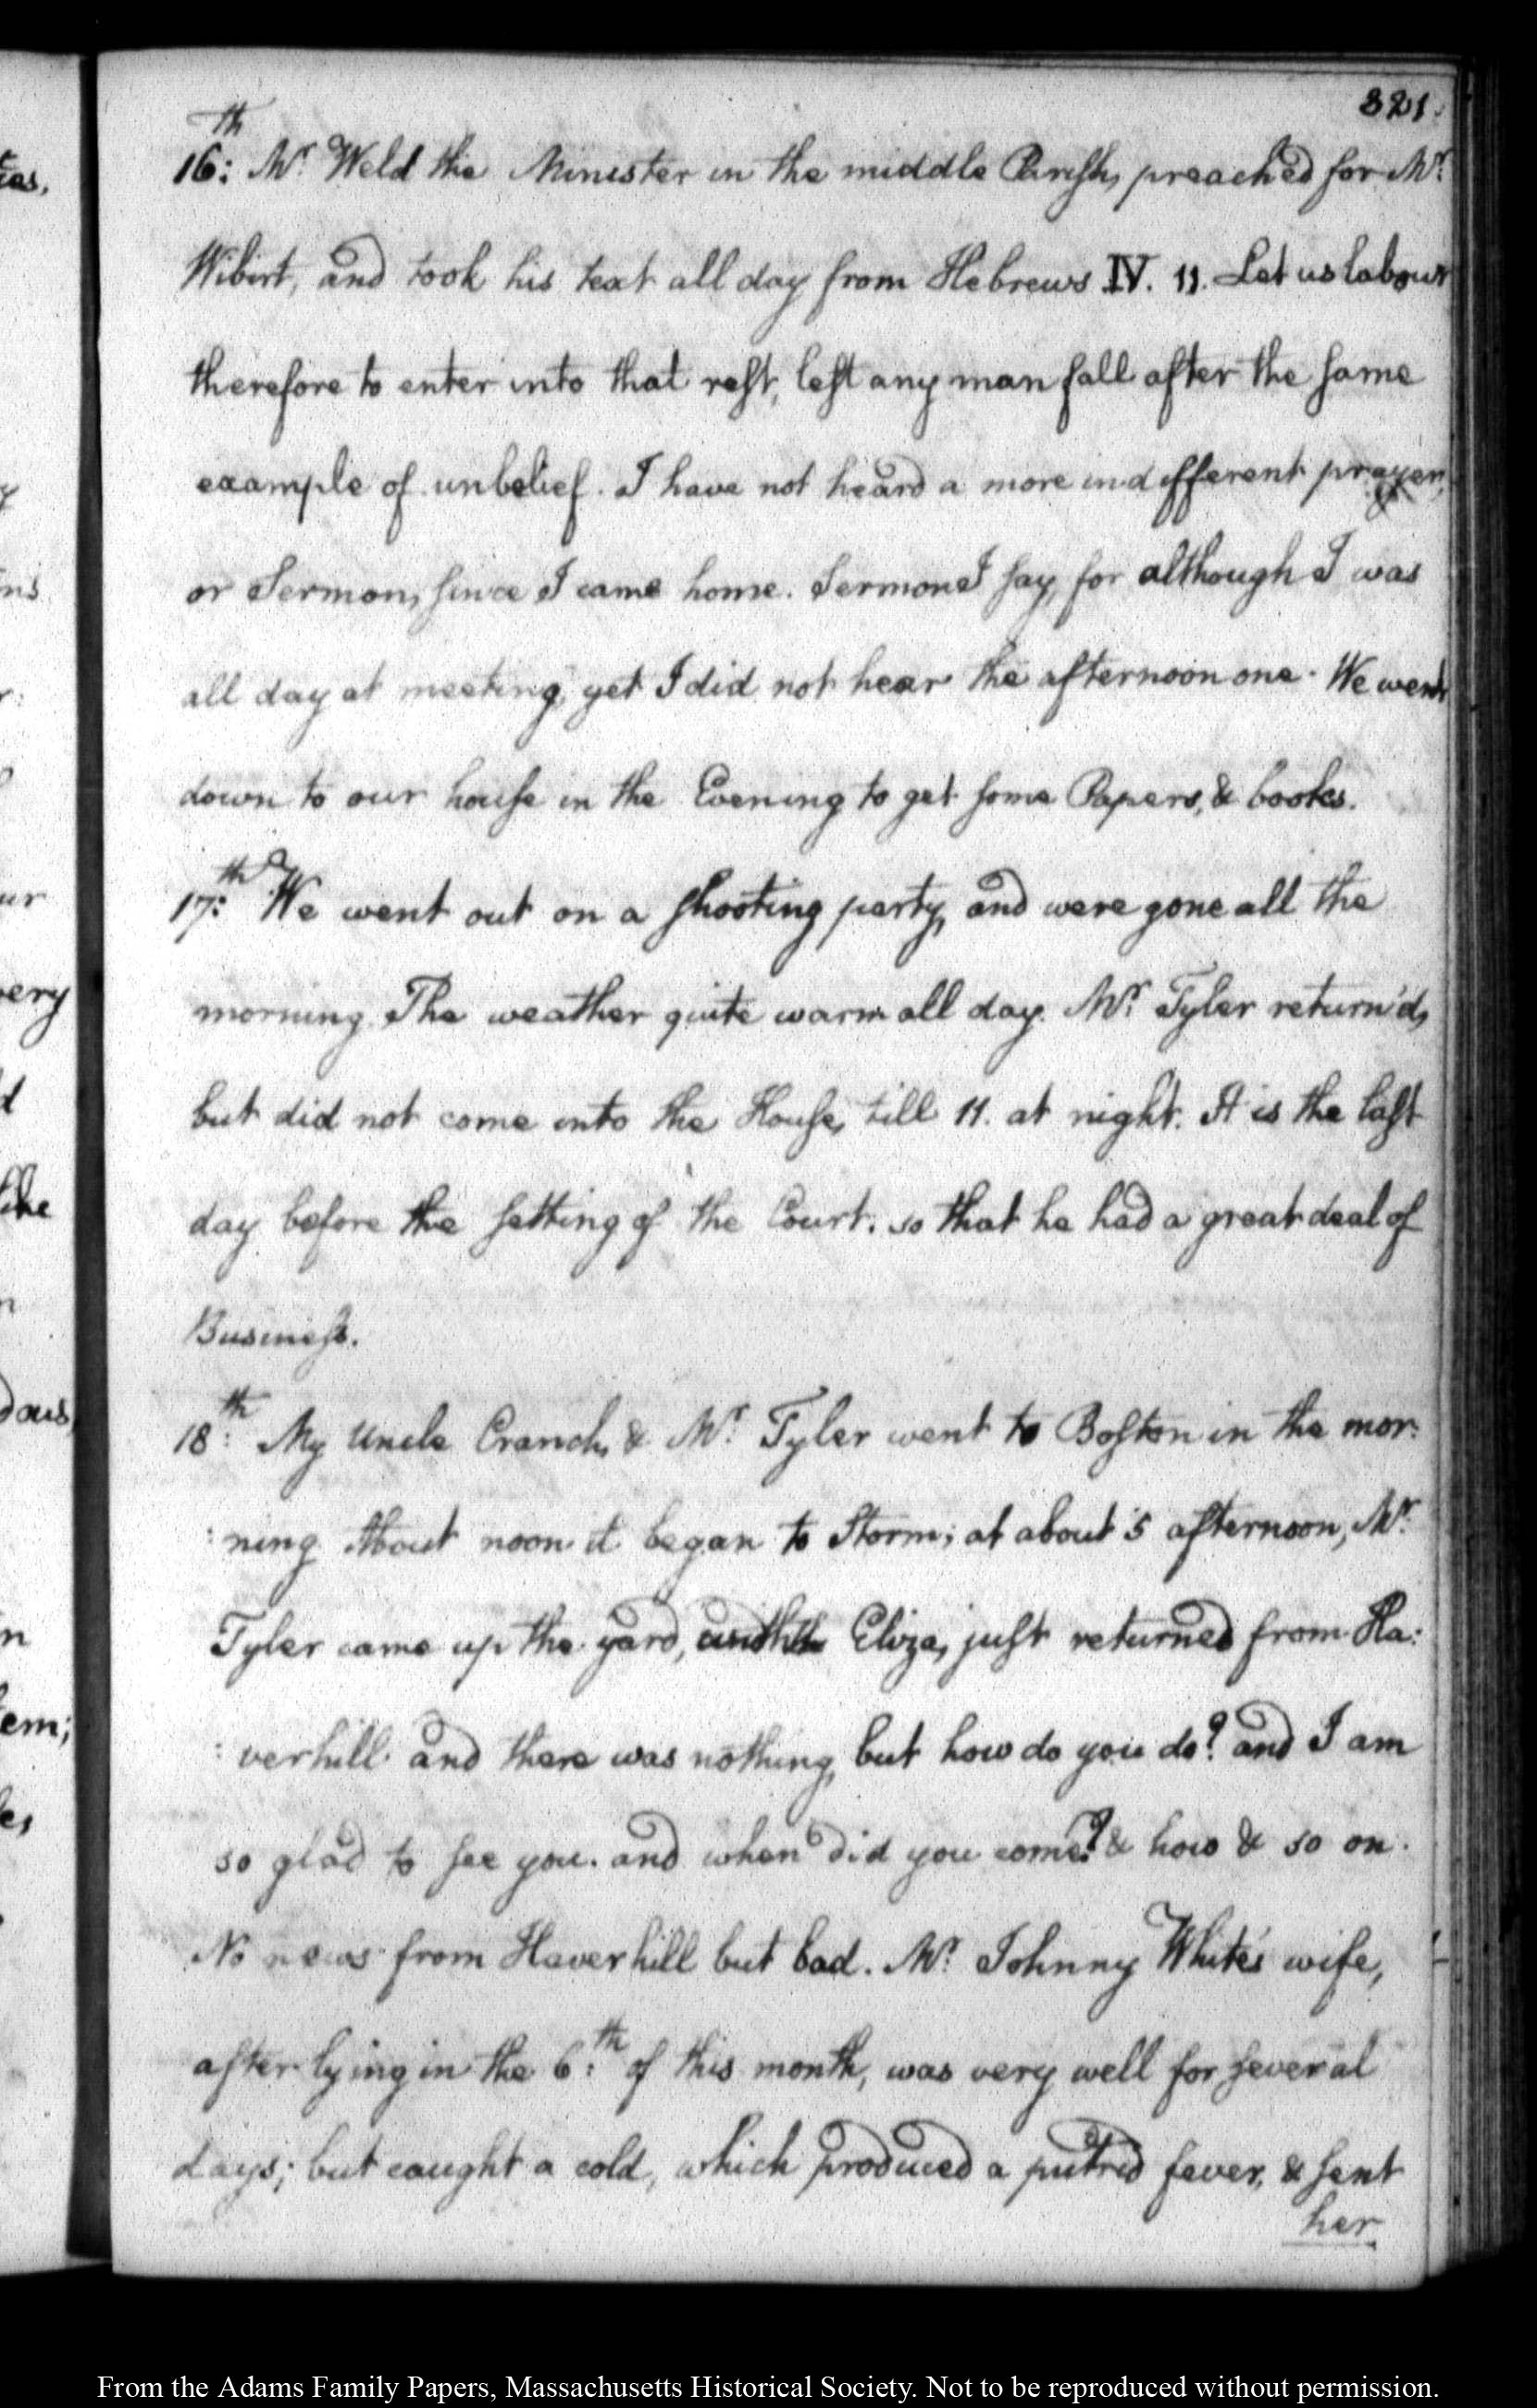 321.
16:th Mr. Weld the Minister in the middle Parish, preached for Mr.
Wibirt, and took his text all day from Hebrews IV. 11. Let us labour
therefore to enter into that rest, lest any man fall after the same
example of unbelief. I have not heard a more indifferent prayer,
or Sermon, since I came home. Sermon I say, for although I was
all day at meeting, yet I did not hear the afternoon one. We went
down to our house in the Evening to get some Papers, & books.
17:th We went out on a shooting party, and were gone all the
morning. The weather quite warm all day. Mr. Tyler return'd,
but did not come into the House, till 11. at night. It is the last
day before the setting of the Court. so that he had a great deal of
Business.
18:th My Uncle Cranch, & Mr. Tyler went to Boston in the mor:
:ning. About noon it began to Storm; at about 5 afternoon, Mr.
Tyler came up the yard, Eliza, just returned from Ha:
:verhill and there was nothing, but how do you do? and I am
so glad to see you. and when did you come? & how & so on.
No news from Haverhill but bad. Mr. Johnny White's wife,
after lying in the 6:th of this month, was very well for several
days; but caught a cold, which produced a putrid fever, & sent
her
ies,
ins
ur
very
like
ous,
tem;
From the Adams Family Papers, Massachusetts Historical Society. Not to be reproduced without permission.